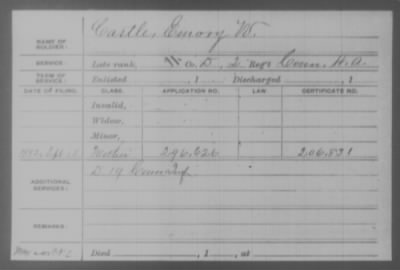 NAME OF SOLDIER: Castle, Emory W.
SERVICE: Late rank, Co. D, 2 Reg't Conn. H.A.
TERM OF SERVICE: Enlisted , 1 Discharged , 1
DATE OF FILING. CLASS. APPLICATION NO. LAW. CERTIFICATE NO.
Invalid,
Widow,
Minor,
1882, Sept. Mother 296,626 206,831
ADDITIONAL SERVICES: D. 19 Conn Inf
REMARKS:
Died , 1 , at